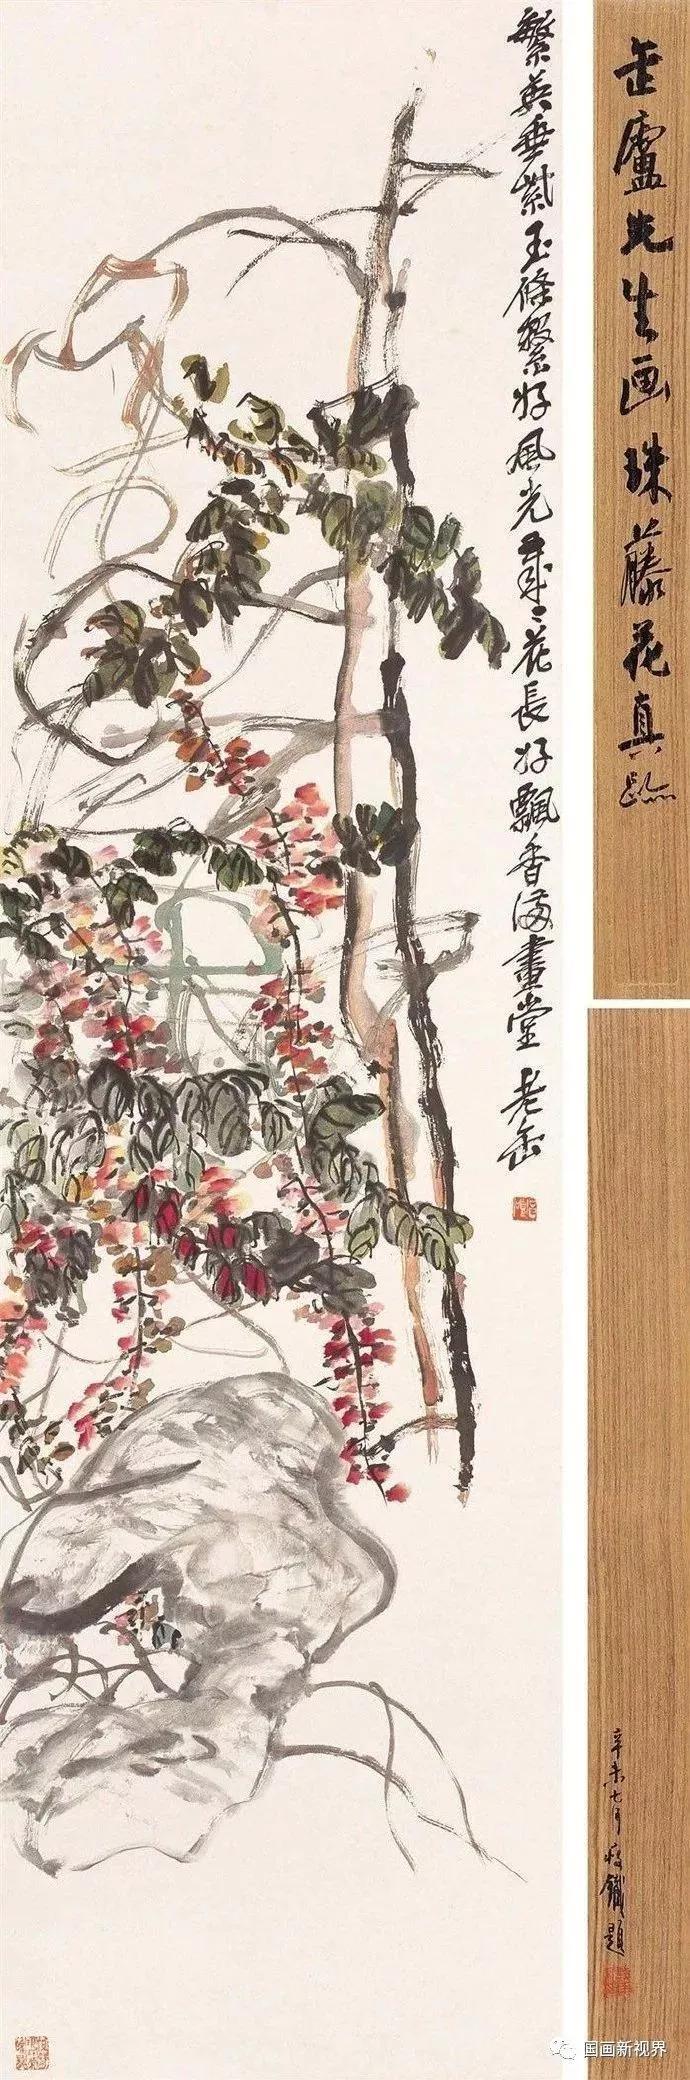 繁英垂紫玉條繫好風光歲〻花長好飄香滿畫堂 老缶
缶廬先生画珠藤花真跡
辛未七月 瘦鐵題
国画新视界